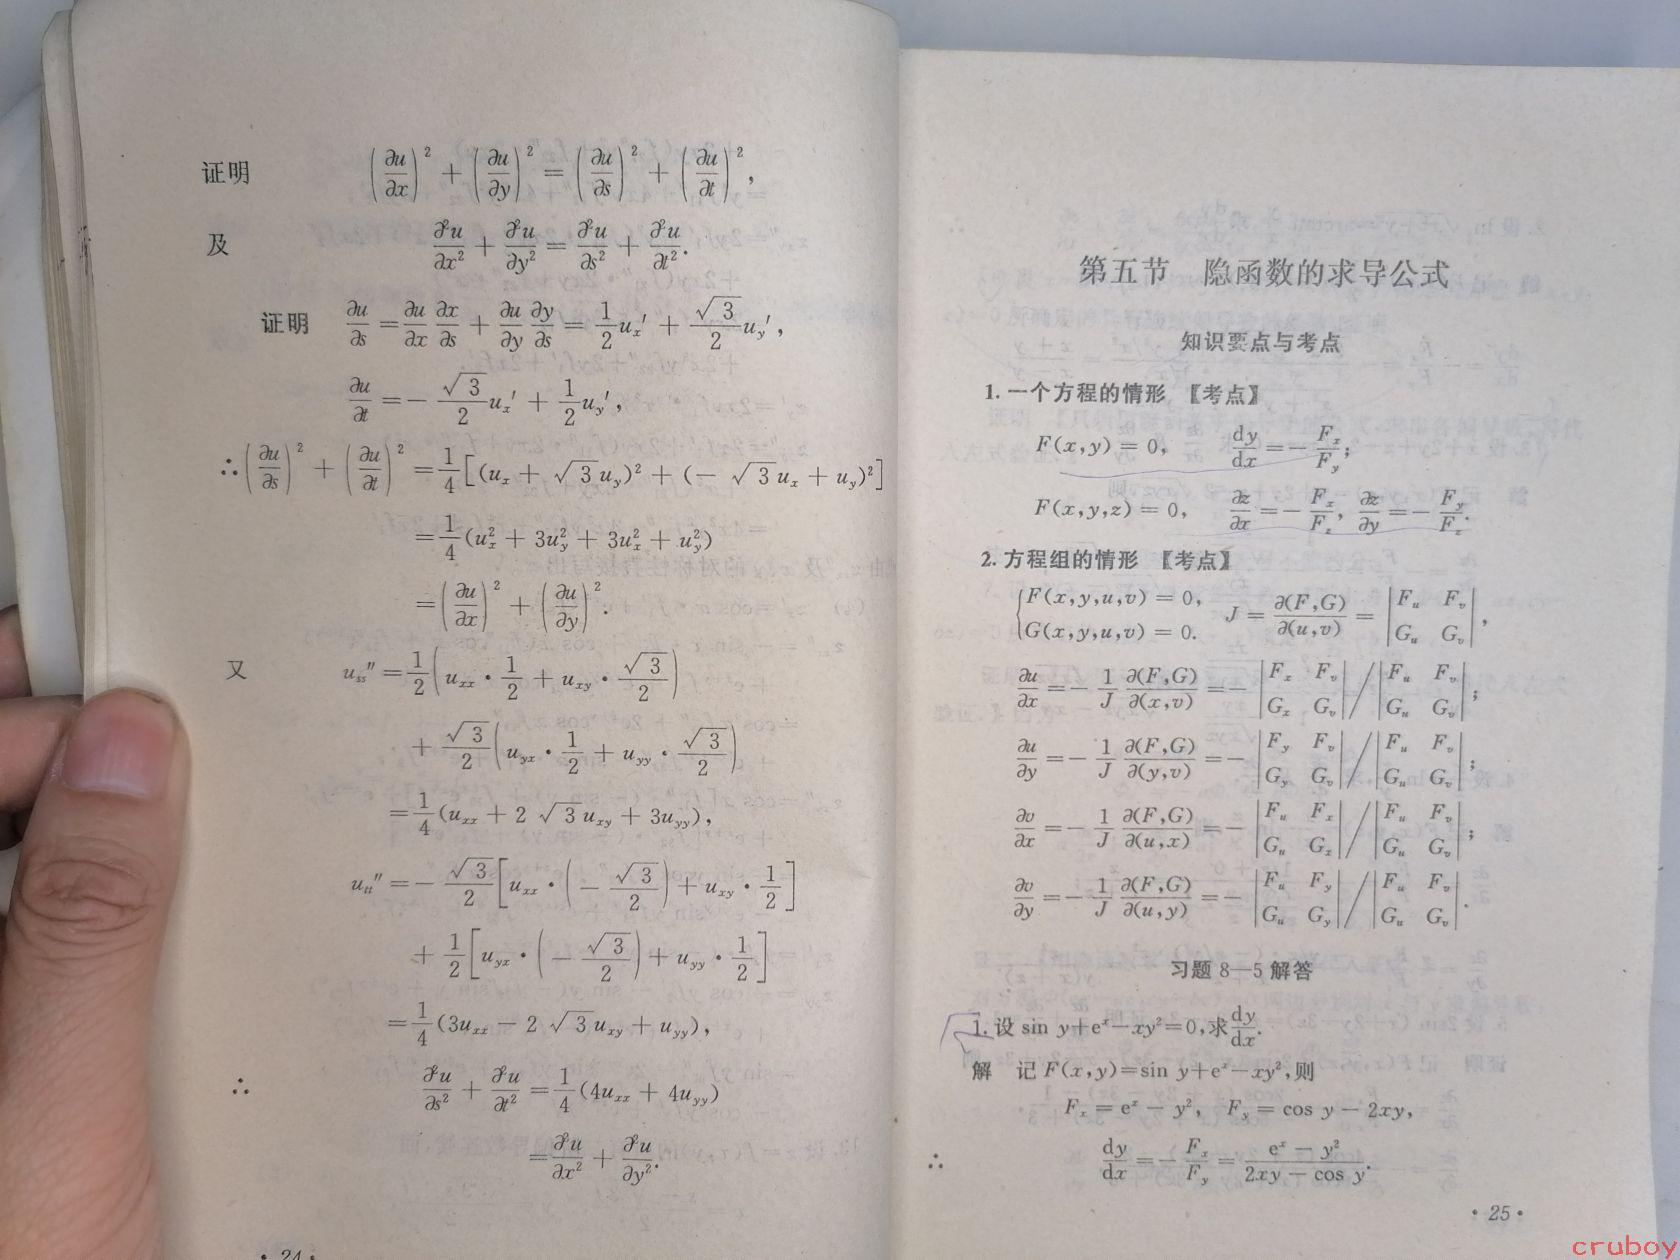 证明 (∂u/∂x)² + (∂u/∂y)² = (∂u/∂s)² + (∂u/∂t)²,
及 ∂²u/∂x² + ∂²u/∂y² = ∂²u/∂s² + ∂²u/∂t².
证明 ∂u/∂s = ∂u/∂x ∂x/∂s + ∂u/∂y ∂y/∂s = 1/2 uₓ′ + √3/2 u_y′,
∂u/∂t = − √3/2 uₓ′ + 1/2 u_y′,
∴ (∂u/∂s)² + (∂u/∂t)² = 1/4[(uₓ + √3u_y)² + (− √3uₓ + u_y)²]
= 1/4(uₓ² + 3u_y² + 3uₓ² + u_y²)
= (∂u/∂x)² + (∂u/∂y)².
又 u_ss″ = 1/2(u_xx · 1/2 + u_xy · √3/2)
+ √3/2(u_yx · 1/2 + u_yy · √3/2)
= 1/4(u_xx + 2√3u_xy + 3u_yy),
u_tt″ = − √3/2[u_xx · (− √3/2) + u_xy · 1/2]
+ 1/2[u_yx · (− √3/2) + u_yy · 1/2]
= 1/4(3u_xx − 2√3u_xy + u_yy),
∴ ∂²u/∂s² + ∂²u/∂t² = 1/4(4u_xx + 4u_yy)
= ∂²u/∂x² + ∂²u/∂y².
· 24 ·
第五节 隐函数的求导公式
知识要点与考点
1. 一个方程的情形 【考点】
F(x,y) = 0, dy/dx = − F_x/F_y;
F(x,y,z) = 0, ∂z/∂x = − F_x/F_z, ∂z/∂y = − F_y/F_z.
2. 方程组的情形 【考点】
{F(x,y,u,v) = 0, G(x,y,u,v) = 0. J = ∂(F,G)/∂(u,v) = |F_u F_v; G_u G_v|,
∂u/∂x = − 1/J ∂(F,G)/∂(x,v) = − |F_x F_v; G_x G_v| / |F_u F_v; G_u G_v|;
∂u/∂y = − 1/J ∂(F,G)/∂(y,v) = − |F_y F_v; G_y G_v| / |F_u F_v; G_u G_v|;
∂v/∂x = − 1/J ∂(F,G)/∂(u,x) = − |F_u F_x; G_u G_x| / |F_u F_v; G_u G_v|;
∂v/∂y = − 1/J ∂(F,G)/∂(u,y) = − |F_u F_y; G_u G_y| / |F_u F_v; G_u G_v|.
习题 8—5 解答
1. 设 sin y+eˣ−xy²=0,求 dy/dx.
解 记 F(x,y)=sin y+eˣ−xy²,则
F_x = eˣ − y², F_y = cos y − 2xy,
∴ dy/dx = − F_x/F_y = (eˣ − y²)/(2xy − cos y).
· 25 ·
cruboy